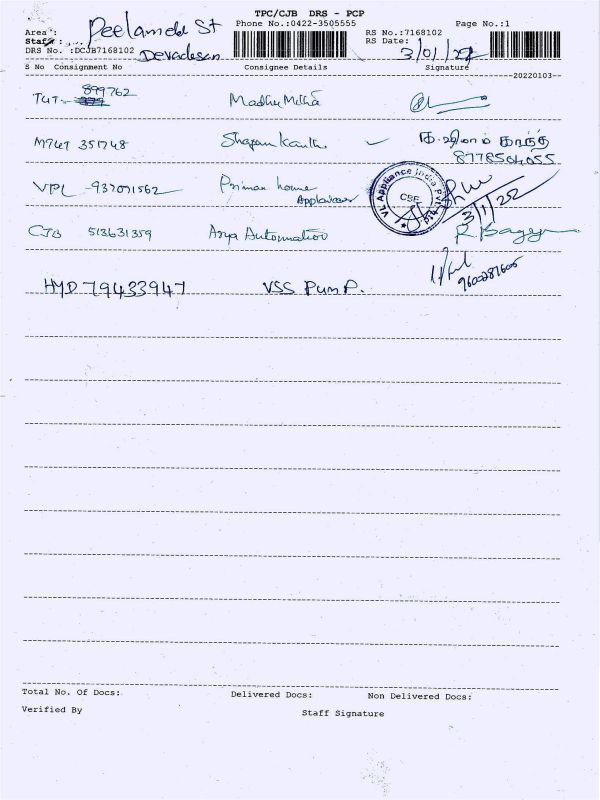 TPC/CJB DRS - PCP
Phone No.:0422-3505555 Page No.:1
Area : Peelamedu St RS No.:7168102
Staff: Devadasan RS Date: 3/01/22
DRS No. :DCJB7168102
S No Consignment No Consignee Details Signature
20220103
TUT - 899762 Madhu Mitha
MTUT 351748 Shyam Kanth
8778504055
VPL - 937071562 Primar home Appliances
VL Appliance India Pvt Ltd
CBE
3/1/22
CJB 513631359 Arya Automation
9600287605
HYD 79433947 VSS Pump.
Total No. Of Docs: Delivered Docs: Non Delivered Docs:
Verified By Staff Signature